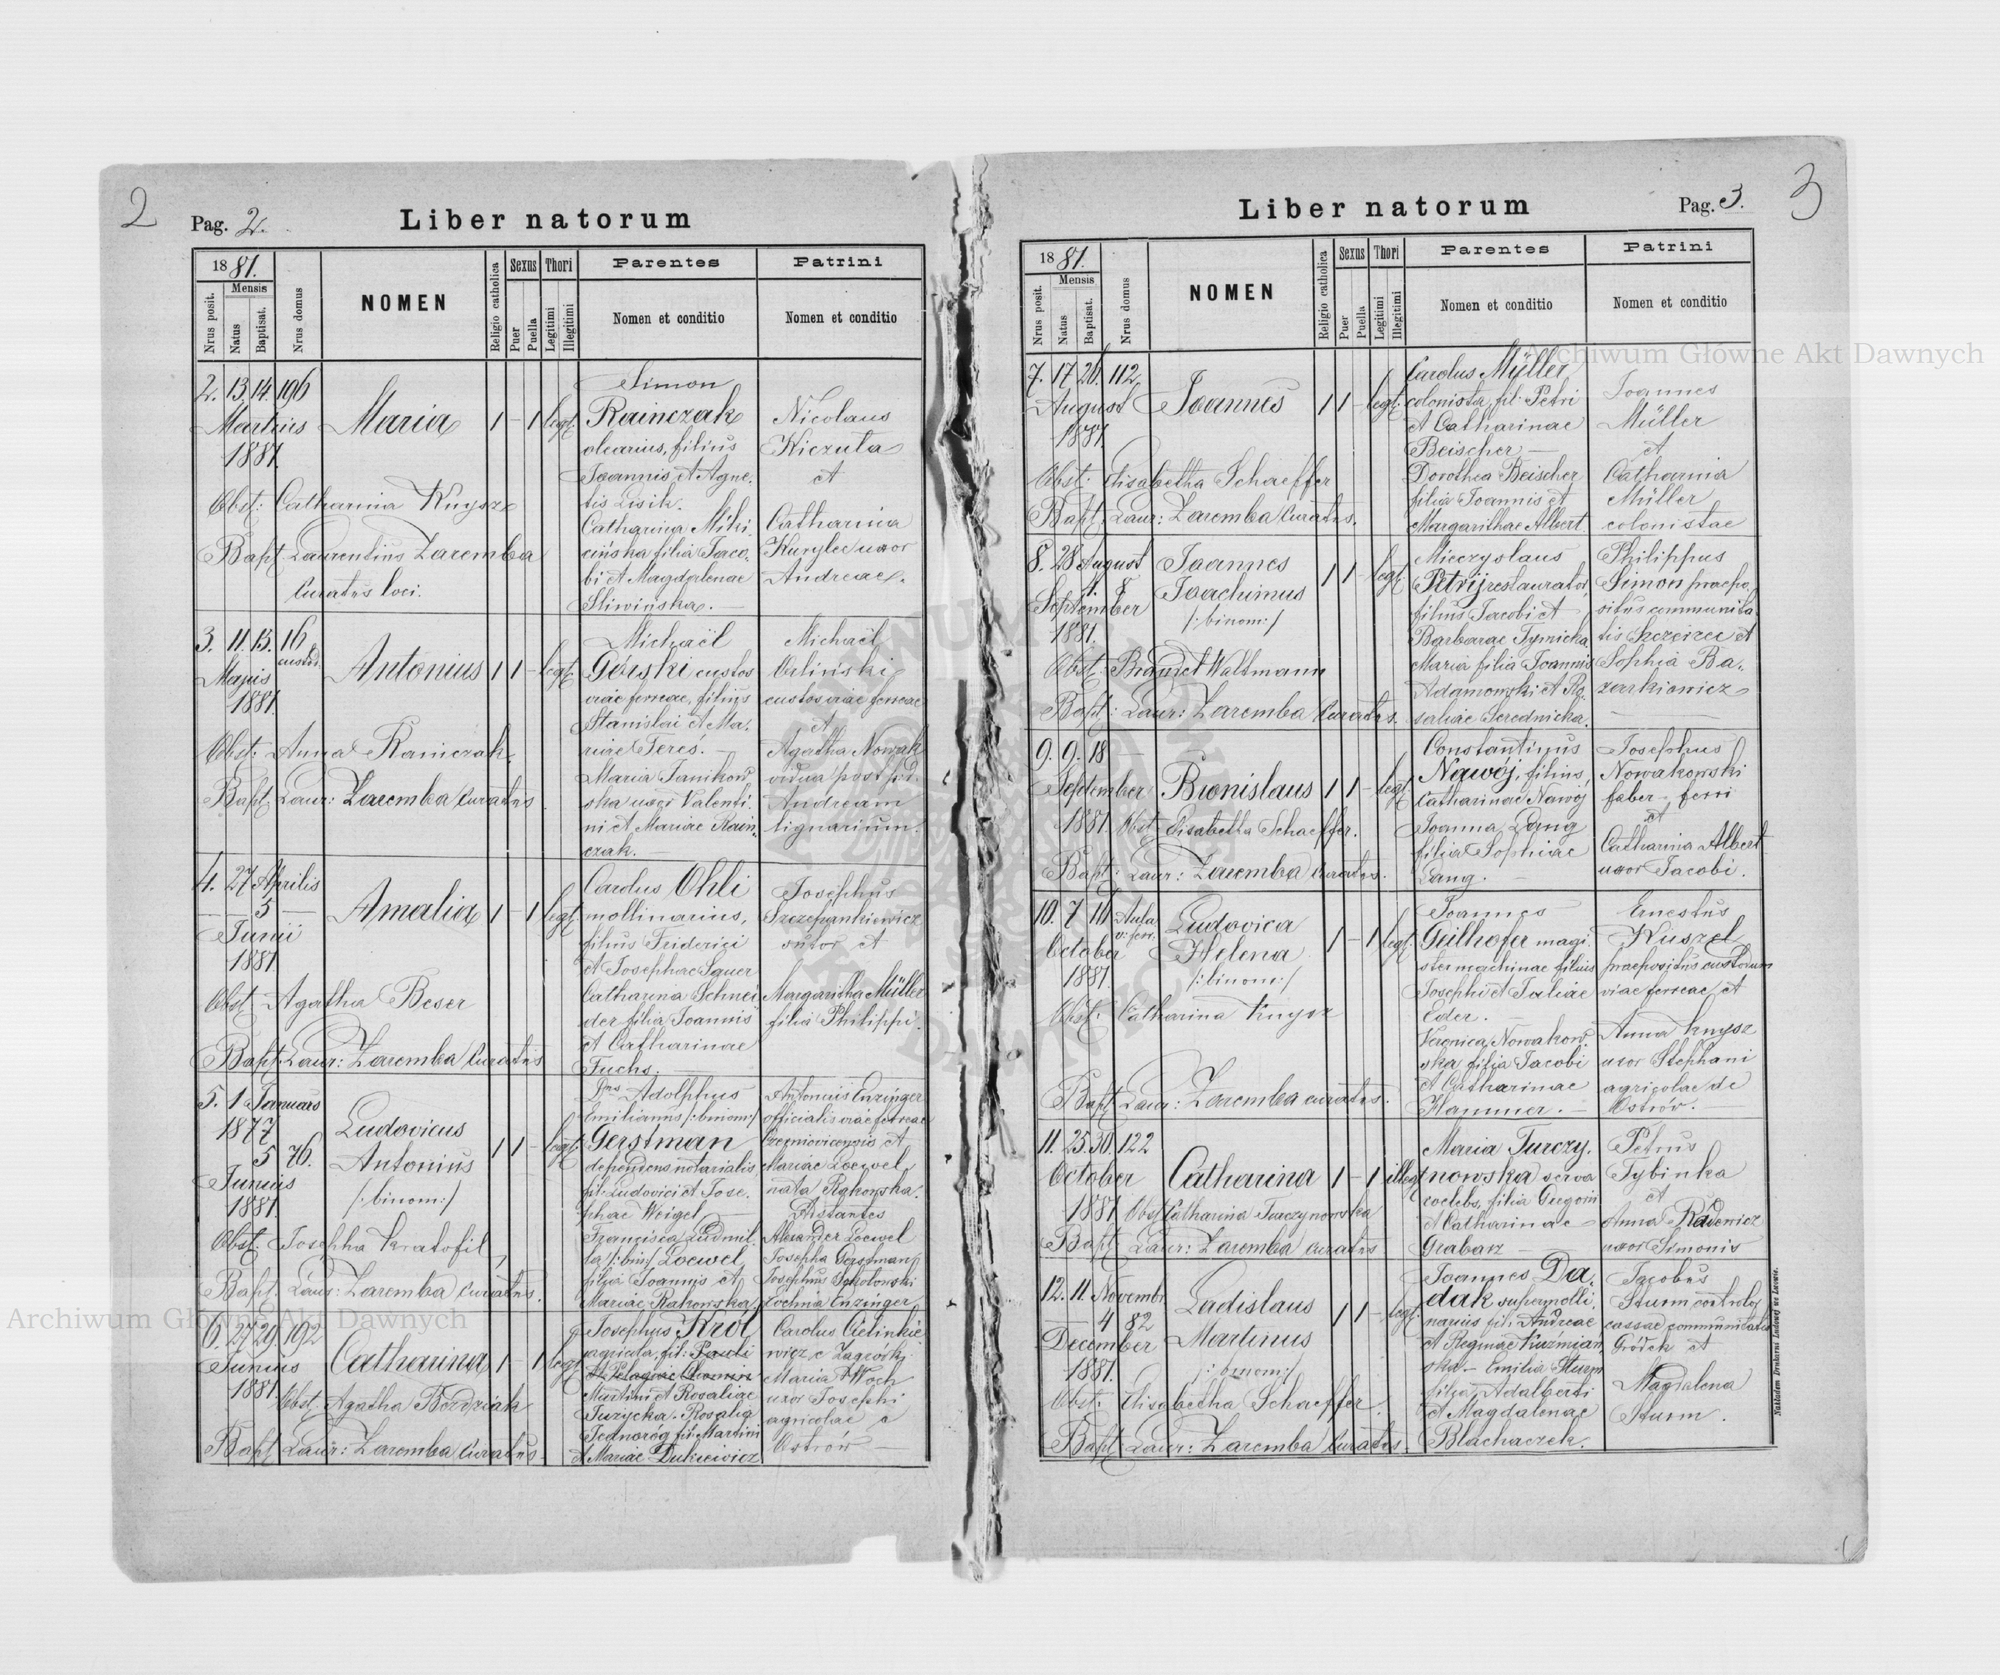 2
Pag. 2.
Liber natorum
1881.
Mensis
Nrus posit.
Natus
Baptisat.
Nrus domus
NOMEN
Religio catholica
Sexus
Puer
Puella
Thori
Legitimi
Illegitimi
Parentes
Nomen et conditio
Patrini
Nomen et conditio
2. 13. 14. 196
Martius
1881
Maria
1 - 1 legt.
Simon
Rainczak
olearius, filius
Joannis et Agne-
tis Lisik.
Catharina Miki-
cińska filia Jaco-
bi et Magdalenae
Sliwińska.
Nicolaus
Kiczula
et
Catharina
Kurylec uxor
Andreae.
Obst: Catharina Knysz
Bapt. Laurentius Zaremba
Curatus loci.
3. 11. 13. 16
custod.
Majus
1881
Antonius
1 1 - legt.
Michaël
Górski custos
viae ferreae, filius
Stanislai et Ma-
riae Tereś.
Maria Janikow-
ska uagi Valenti-
ni et Mariae Rain-
czak.
Michaël
Orliński
custos viae ferreae
et
Agatha Nowak
vidua post
Andream
lignarium.
Obst: Anna Rainczak.
Bapt. Laur: Zaremba Curatus.
4. 27 Aprilis
5
Junii
1881
Amalia
1 - 1 legt.
Carolus Ohli
mollinarius,
filius Friderici
et Josephae Sauer
Catharina Schnei-
der filia Joannis
et Catharinae
Fuchs.
Josephus
Szczepankiewicz
sutor et
Margaritha Müller
filia Philippi.
Obst. Agatha Beser
Bapt. Laur: Zaremba Curatus
5. 1 Januars
1877
5 76.
Junius
1881
Ludovicus
Antonius
/:binom:/
1 1 - legt.
Dns Adolphus
Emilianus /:binom:/
Gerstman
dependens notarialis
fil: Ludovici et Jose-
phae Weigel
Francisca Ludmil-
la /:bin:/ Loewel
filia Joannis et
Mariae Rakowska.
Antonius Enzinger
officialis viae ferreae
Czerniovicensis et
Mariae Loewel
nata Rakowska.
Astantes
Alexander Loewel
Josepha Gerstman
Josephus Sokolowski
Enzinger
Obst: Josepha Kratofil
Bapt. Laur: Zaremba Curatus.
6. 27 29. 192
Junius
1881.
Catharina
1 - 1 legt.
Josephus Król
agricola, fil: Pauli
et Pelagiae
Martini et Rosaliae
Tuzycka. Rosalia
Jednoróg fil: Martini
et Mariae Dukiewicz
Carolus Cielinkie-
wicz e Zagórki
Maria Woch
uxor Josephi
agricolae e
Ostrów
Obst. Agatha Bordziak
Bapt. Laur: Zaremba Curatus.
3
Pag. 3.
Liber natorum
1881.
Mensis
Nrus posit.
Natus
Baptisat.
Nrus domus
NOMEN
Religio catholica
Sexus
Puer
Puella
Thori
Legitimi
Illegitimi
Parentes
Nomen et conditio
Patrini
Nomen et conditio
7. 17 26. 112.
August
1881.
Joannes
1 1 - legt.
Carolus Müller,
colonista, fil: Petri
et Catharinae
Beischer
Dorothea Beischer
filia Joannis et
Margarithae Albert
Joannes
Müller
et
Catharina
Müller
colonistae
Obst: Elisabetha Schaeffer
Bapt. Laur: Zaremba Curatus.
8. 28 August
8
September
1881.
Joannes
Joachimus
/:binom:/
1 1 - legt.
Mieczyslaus
Petrij restaurator,
filius Jacobi et
Barbarae Tymicka
Maria filia Joannis
Adamowski et Ro-
saliae Serednicka.
Philippus
Simon praepo-
situs communita-
tis Szczeirec et
Sophia Ba-
zarkiewicz
Obst. Waltmann
Bapt. Laur: Zaremba Curatus.
9. 9. 18
September
1881.
Bronislaus
1 1 - legt.
Constantinus
Nawój, filius
Catharinae Nawój
Joanna Lang
filia Sophiae
Lang.
Josephus
Nowakowski
faber ferri
et
Catharina Albert
uxor Jacobi.
Obst. Elisabetha Schaeffer.
Bapt. Laur: Zaremba Curatus.
10. 7 16 Aula
v: ferr.
October
1881.
Ludovica
Helena
/:binom:/
1 - 1 legt.
Joannes
Geilhofer magi-
ster machinae filius
Josephi et Juliae
Eder.
Veronica Nowakow-
ska filia Jacobi
et Catharinae
Hammer.
Ernestus
Kuszel
praepositus custorum
viae ferreae, et
Anna Knysz
uxor Stephani
agricolae de
Ostrów.
Obst. Catharina Knysz
Bapt. Laur: Zaremba curatus.
11. 25. 30. 122
October
1881
Catharina
1 - 1 illegt
Maria Turczy-
nowska serva
coelebs, filia Gregorii
et Catharinae
Graban
Petrus
Tybinka
et
Anna Radewicz
uxor Simonis
Obst. Catharina Turczynowska
Bapt. Laur: Zaremba curatus
12. 11. Novembr.
4 82
December
1881.
Ladislaus
Martinus
/:binom:/
1 1 - legt.
Joannes Da-
dak supermolli-
narius fil: Andreae
et Reginae Kuźmian-
ska - Emilia Sturm
filia Adalberti
et Magdalenae
Blachaczek.
Jacobus
Sturm controlor
cassae communitatis
Gródek et
Magdalena
Sturm.
Obst: Elisabetha Schaeffer.
Bapt. Laur: Zaremba Curatus.
Nakładem Drukarni Ludowej we Lwowie.
Archiwum Główne Akt Dawnych
Archiwum Główne Akt Dawnych